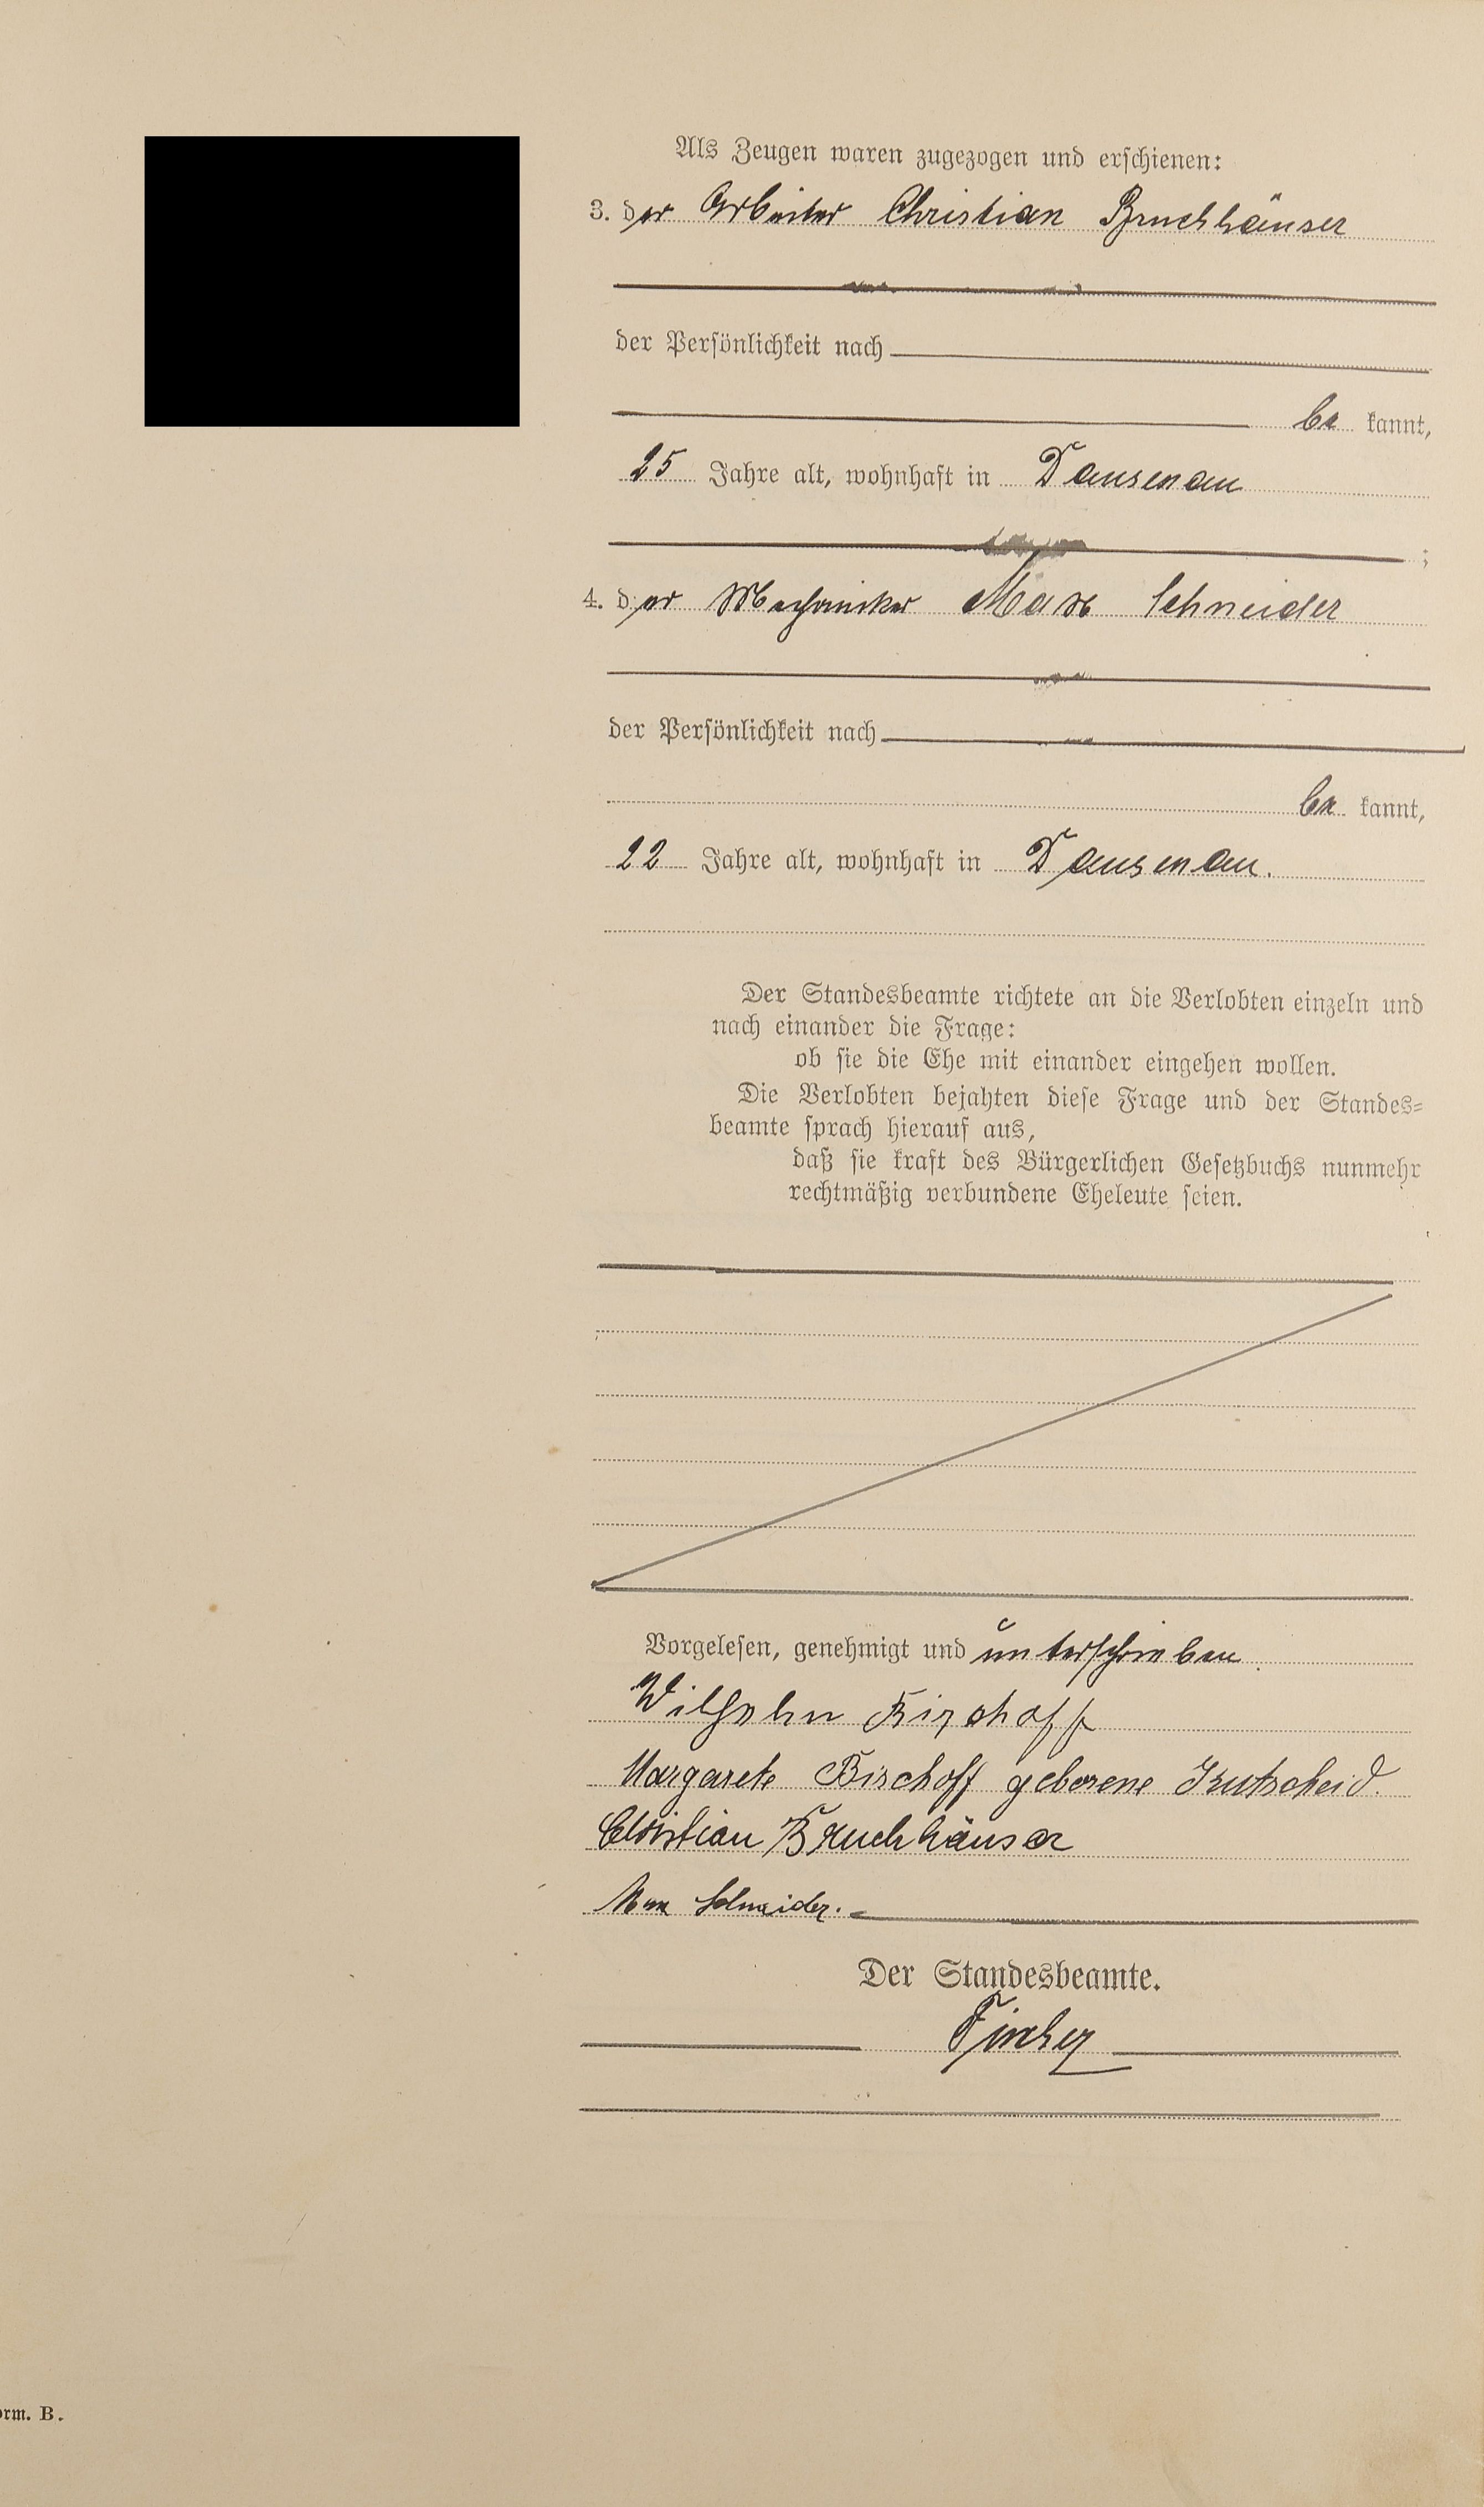 Als Zeugen waren zugezogen und erschienen:
3. der Arbeiter Christian Bruchhäuser
der Persönlichkeit nach
be kannt,
25 Jahre alt, wohnhaft in Dausenau
;
4. der Mechaniker Max Schneider
der Persönlichkeit nach
be kannt,
22 Jahre alt, wohnhaft in Dausenau.
Der Standesbeamte richtete an die Verlobten einzeln und
nach einander die Frage:
ob sie die Ehe mit einander eingehen wollen.
Die Verlobten bejahten diese Frage und der Standes-
beamte sprach hierauf aus,
daß sie kraft des Bürgerlichen Gesetzbuchs nunmehr
rechtmäßig verbundene Eheleute seien.
Vorgelesen, genehmigt und unterschrieben.
Wilhelm Bischoff
Margarete Bischoff geborene
Christian Bruchhäuser
Max Schneider.
Der Standesbeamte.
orm. B.